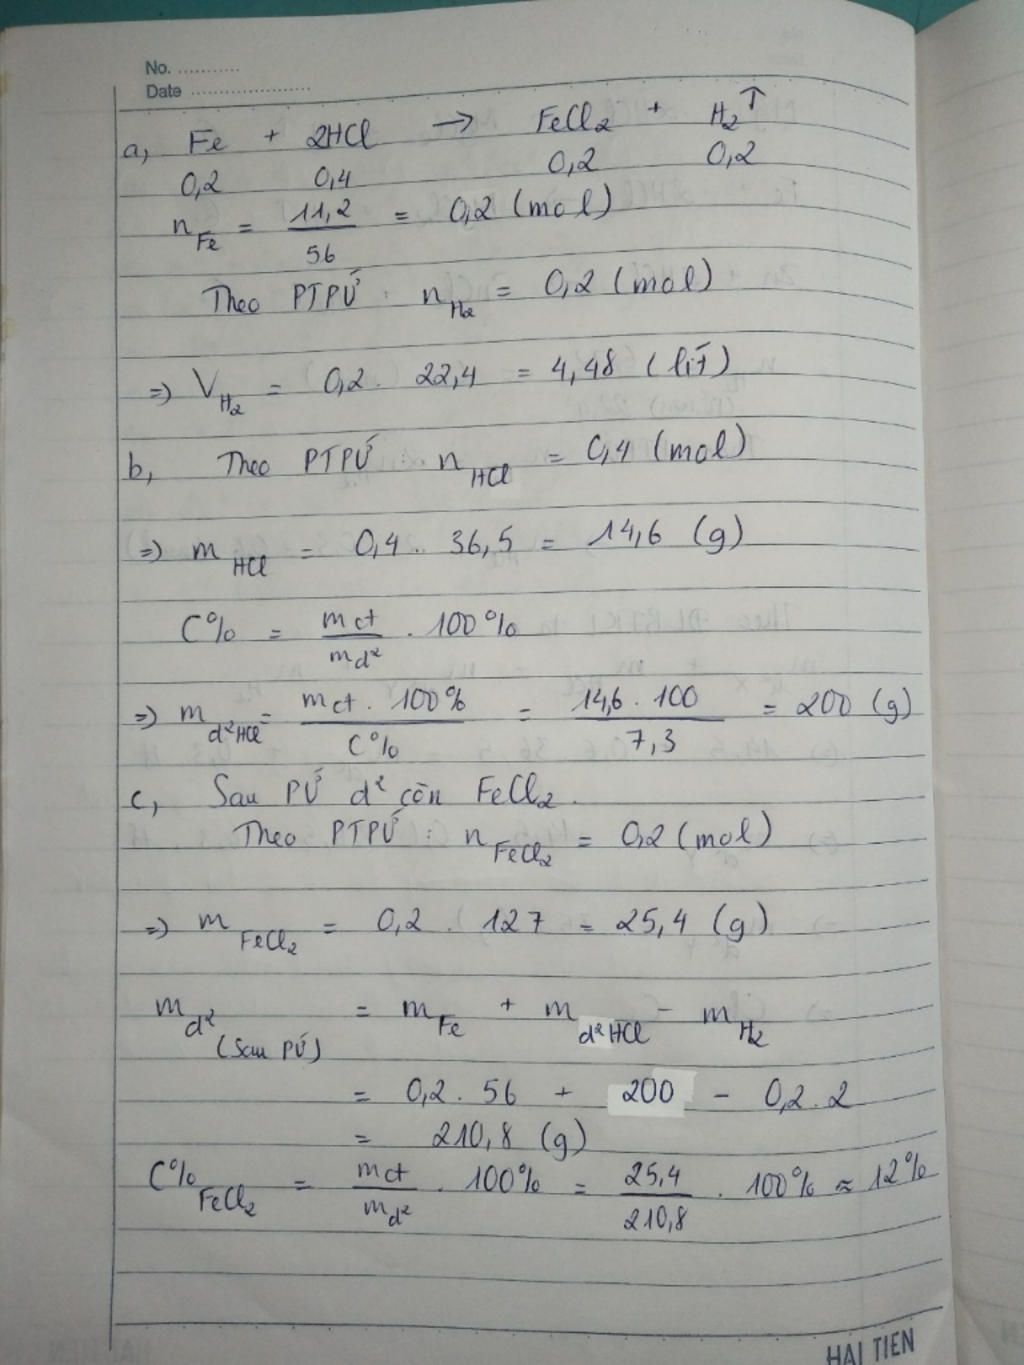 No. ...........
Date ......................
a, Fe + 2HCl → FeCl2 + H2↑
0,2 0,4 0,2 0,2
nFe = 11,2/56 = 0,2 (mol)
Theo PTPƯ : nH2 = 0,2 (mol)
=> VH2 = 0,2 . 22,4 = 4,48 (lít)
b, Theo PTPƯ : nHCl = 0,4 (mol)
=> mHCl = 0,4 . 36,5 = 14,6 (g)
C% = mct/md² . 100%
=> md²HCl = mct . 100%/C% = 14,6 . 100/7,3 = 200 (g)
c, Sau PƯ d² còn FeCl2.
Theo PTPƯ : nFeCl2 = 0,2 (mol)
=> mFeCl2 = 0,2 . 127 = 25,4 (g)
md² (Sau PƯ) = mFe + md²HCl - mH2
= 0,2 . 56 + 200 - 0,2 . 2
= 210,8 (g)
C% FeCl2 = mct/md² . 100% = 25,4/210,8 . 100% ≈ 12%
HẢI TIẾN